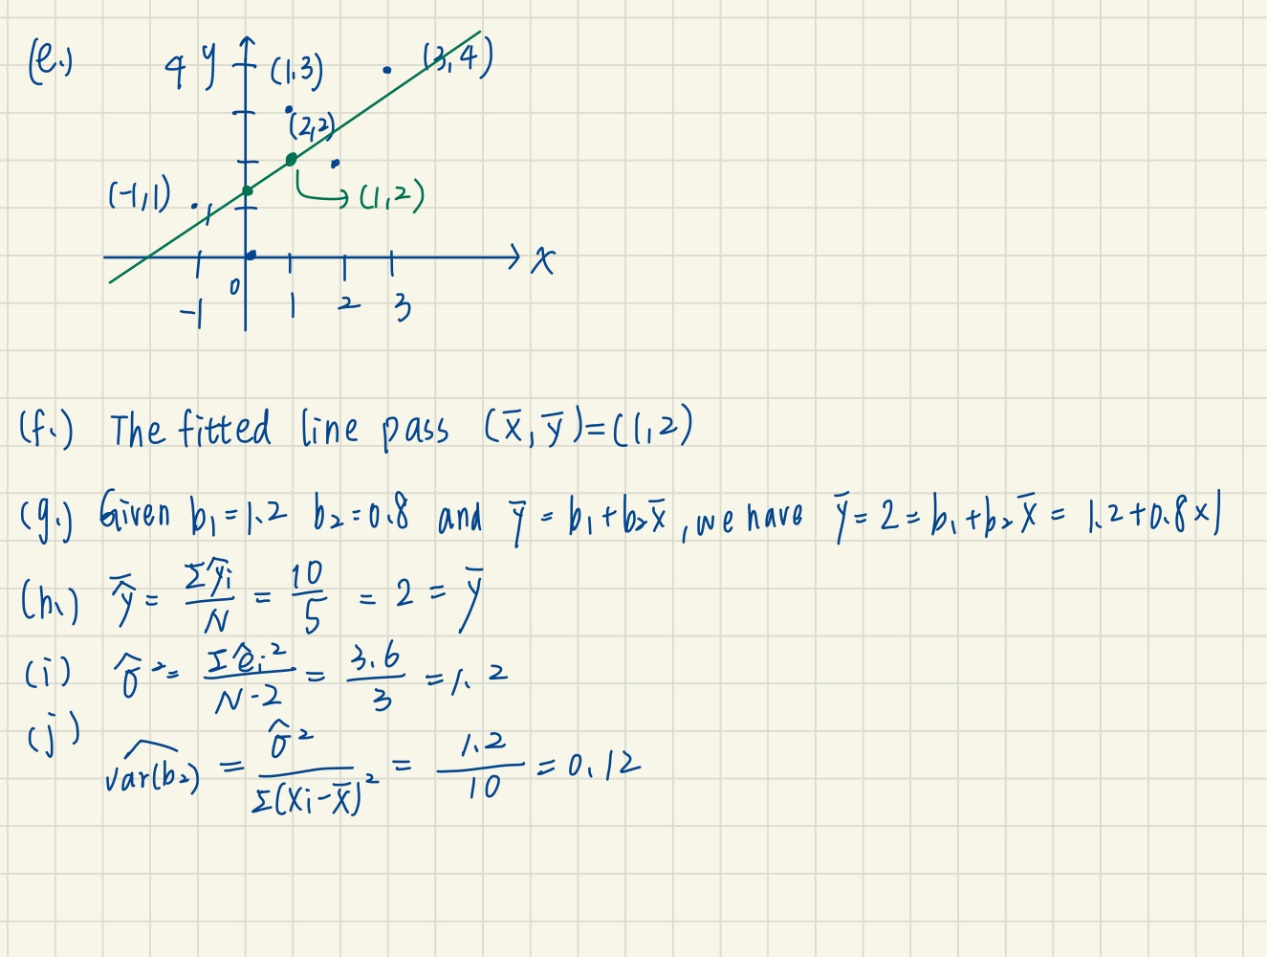 (e.)
4 y (1,3) (3,4)
(2,2)
(-1,1) (1,2)
x
0
-1 1 2 3
(f.) The fitted line pass (x̄, ȳ)=(1,2)
(g.) Given b₁=1.2 b₂=0.8 and ȳ = b₁+b₂x̄, we have ȳ=2=b₁+b₂x̄ = 1.2+0.8×1
(h.) ŷ̄ = Σŷi/N = 10/5 = 2 = ȳ
(i) σ̂² = Σêi²/N-2 = 3.6/3 = 1.2
(j)
var(b₂)^ = σ̂²/Σ(xi-x̄)² = 1.2/10 = 0.12